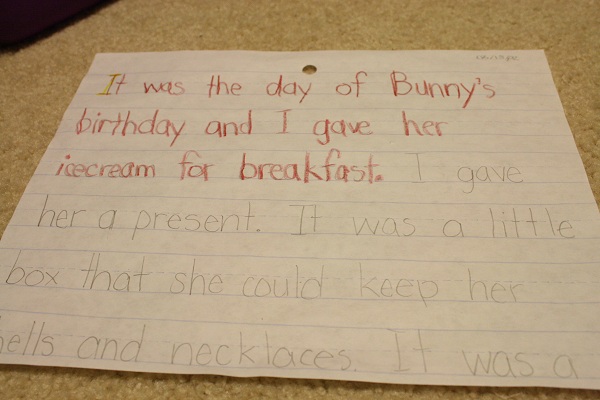 It was the day of Bunny's
birthday and I gave her
icecream for breakfast. I gave
her a present. It was a little
box that she could keep her
and necklaces. It was a